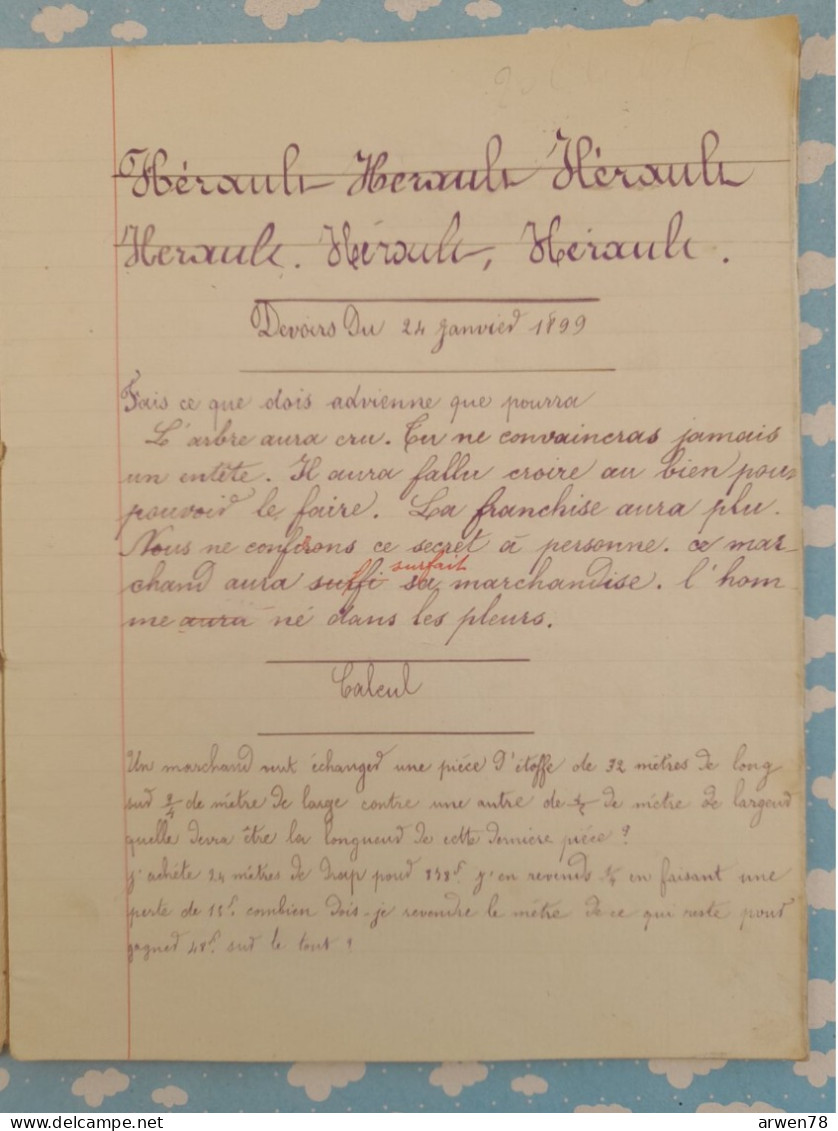 Hérault Herault Hérault
Herault. Hérault, Hérault.
Devoirs Du 24 Janvier 1899
Fais ce que dois advienne que pourra
L'arbre aura cru. Tu ne convaincras jamais
un entêté. Il aura fallu croire au bien pour
pouvoir le faire. La franchise aura plu.
Nous ne confirons ce secret à personne. ce mar-
surfait
chand aura suffi sa marchandise. l'hom
me aura né dans les pleurs.
Calcul
Un marchand veut échanger une pièce d'étoffe de 32 mètres de long
sur 3/4 de mètre de large contre une autre de de mètre de largeur
quelle devra être la longueur de cette dernière pièce ?
j'achète 24 mètres de drap pour 338f j'en revend en faisant une
perte de 15f. combien dois-je revendre le mètre de ce qui reste pour
gagner 48f. sur le tout ?
www.delcampe.net
arwen78